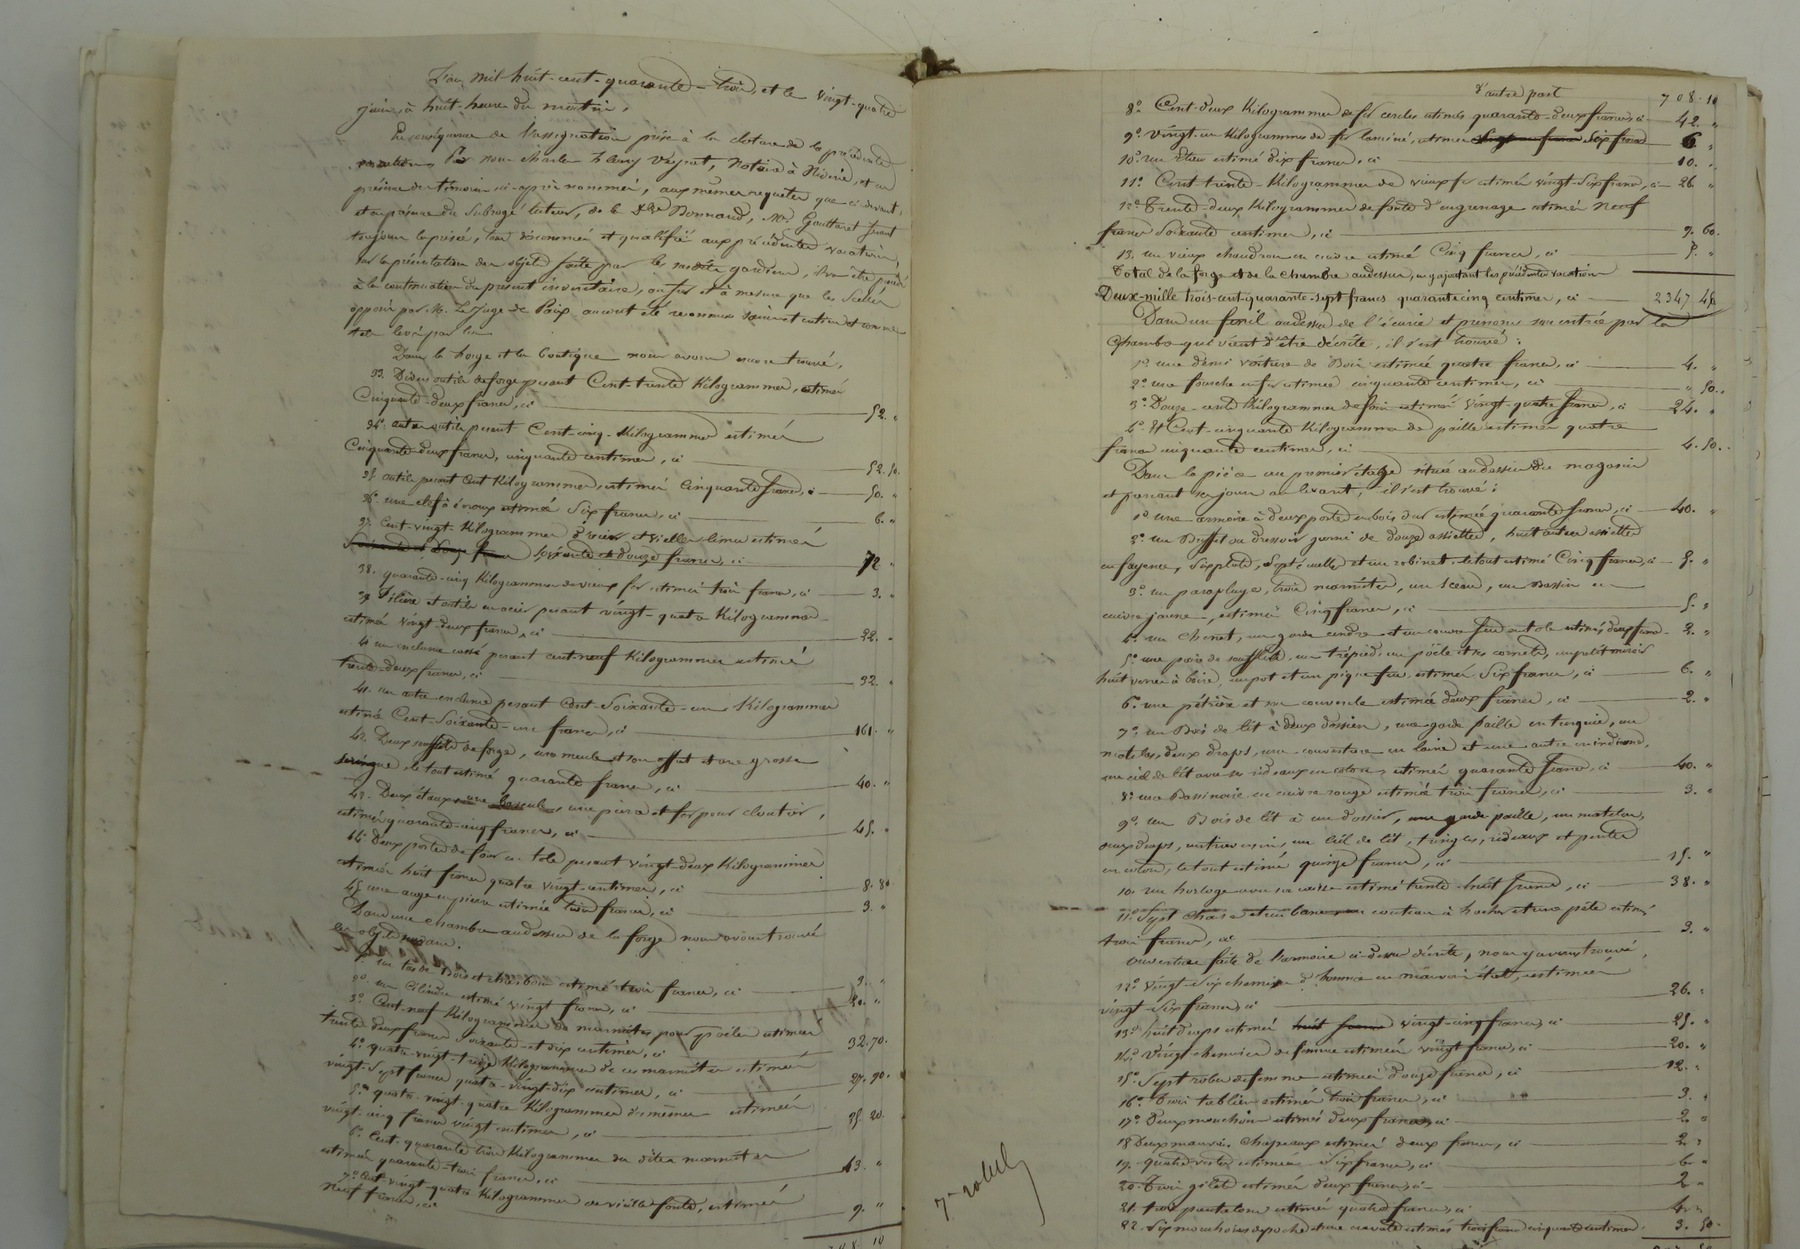 L'an mil huit-cent-quarante-trois, et le vingt-quatre
juin, à huit-heure du matin,
En conséquence de l'assignation prise à la cloture de la précédente
vacation, nous Charles Henry Veyrat, Notaire à Rivier, et en
présence des témoins ci-après nommés, aux mêmes requêtes que ci-devant,
et en présence du subrogé tuteur, de le Sr Bonnard, Me Gouttaret
toujours la prisée, tous dénommés et qualifiés aux précédentes vacations,
sur la présentation des objets faite par le susdit gardien, il va être procédé
à la continuation du présent inventaire, au fur et à mesure que les scellés
apposés par M. Le Juge de Paix auront été reconnus sains et entiers et comme
tels levés par lui
Dans la forge et la boutique nous avons encore trouvé,
33. Divers outils de forge pesant Cent-trente Kilogrammes, estimés
Cinquante-deux francs, ci 52. "
34. autres outils pesant Cent-cinq-Kilogrammes estimés
Cinquante-deux francs, cinquante centimes, ci 52.50.
35. outils pesant Cent Kilogrammes, estimés Cinquante francs, ci 50. "
36. une clef à écroux estimée Six francs, ci 6. "
37. Cent-vingt-Kilogrammes d'acier et vieilles limes estimés
soixante-et-douze francs, ci 72 "
38. quarante-cinq Kilogrammes de vieux fer estimés trois francs, ci 3. "
39. filière et outils en acier pesant vingt-quatre Kilogrammes
estimés vingt-deux francs, ci 22. "
40. un enclume cassé pesant cent-neuf Kilogrammes estimé
trente-deux francs, ci 32. "
41. un autre enclume pesant Cent-Soixante-un Kilogrammes
estimé Cent-Soixante-un francs, ci 161. "
42. Deux soufflets de forge, une meule et son affut et une grosse
seringue, le tout estimé quarante francs, ci 40. "
43. Deux étaux une bascule, une pièce et fer pour cloutier,
estimés quarante-cinq francs, ci 45. "
44. Deux portes de four en tole pesant vingt-deux Kilogrammes
estimées huit francs quatre vingt-centimes, ci 8.80
45 une auge en pierre estimée trois francs, ci 3. "
Dans une chambre au dessus de la forge nous avons trouvé
les objets suivans.
1° un tas de Bois et charbon estimé trois francs, ci 3. "
2° un Cilindre estimé vingt francs, ci 20. "
3° Cent-neuf Kilogrammes de marmites pour poëles estimées
trente-deux francs Soixante-et-dix centimes, ci 32.70.
4° quatre-vingt-treize Kilogrammes de marmites estimées
vingt-Sept francs quatre-vingt-dix centimes, ci 27.90.
5° quatre vingt-quatre Kilogrammes des mêmes estimées
vingt-cinq francs vingt centimes, ci 25.20.
6° Cent-quarante trois Kilogrammes des dites marmites
estimées quarante-trois francs, ci 43. "
7° Cent vingt-quatre Kilogrammes de vieille fonte, estimés
Neuf francs, ci 9. "
708.10
D'autre part 708.10
8° Cent-deux Kilogrammes de fer cercles estimés quarante-deux francs, ci 42. "
9° vingt-un Kilogrammes de fer laminé, estimés Six francs 6 "
10° un Etau estimé dix francs, ci 10. "
11° Cent-trente-Kilogrammes de vieux fer estimés vingt-Six francs, ci 26 "
12° Trente-deux Kilogrammes de fonte d'engrenage estimés Neuf
francs Soixante centimes, ci 9.60.
13. un vieux chaudron en cuivre estimé Cinq francs, ci 5. "
Total de la forge et de la chambre au dessus, en y ajoutant les précédentes vacations
Deux-mille trois-cent-quarante-sept francs quarante cinq centimes, ci 2347 45
Dans un fenil au dessus de l'écurie et prenons son entrée par la
Chambre qui vient d'être décrite, il s'est trouvé :
1° une demi voiture de Bois estimée quatre francs, ci 4. "
2° une fourche en fer estimée cinquante centimes, ci " 50.
3° Douze-cents Kilogrammes de foin estimés vingt-quatre francs, ci 24. "
4° Cent-cinquante Kilogrammes de paille estimés quatre
francs cinquante centimes, ci 4.50.
Dans la pièce au premier étage située au dessus du magasin
et prenant son jour au levant, il s'est trouvé :
1° une armoire à deux portes en bois dur estimée quarante francs, ci 40. "
2° un Buffet ou dressoir garni de douze assiettes, huit autres assiettes
en fayence, Six plats, Sept écuelles et un robinet, le tout estimé Cinq francs, ci 5. "
3° un parapluye, trois marmites, un Sceau, un Bassin en
cuivre jaune, estimés Cinq francs, ci 5. "
4° un Chenet, un garde cendre et un couvre feu en tole estimés deux francs 2. "
5° une paire de soufflets, un trépied, un poële et ses cornets, un petit miroir
huit verres à boire, un pot et un pique feu estimés Six francs, ci 6. "
6° une pétrière et son couvercle estimée deux francs, ci 2. "
7° un Bois de lit à deux dossiers, une garde paille en triègue, un
matelas, deux draps, une couverture en laine et une autre en indienne,
un ciel de lit avec ses rideaux en coton, estimés quarante francs, ci 40. "
8° une Bassinoire en cuivre rouge estimée trois francs, ci 3. "
9° un Bois de lit à un dossier, une garde paille, un matelas,
deux draps, un traversin, un ciel de lit, tringles, rideaux et pentes
en coton, le tout estimé quinze francs, ci 15. "
10. une horloge avec sa caisse estimée trente-huit francs, ci 38. "
11° Sept chaises et un banc couteau à hacher et une pèle estimés
trois francs, ci 3. "
Ouverture faite de l'armoire ci-dessus décrite, nous y avons trouvé,
12° vingt-Six chemises d'homme en mauvais état, estimées
vingt-Six francs, ci 26. "
13° huit draps estimés huit francs vingt-cinq francs, ci 25. "
14° vingt chemises de femme estimées vingt francs, ci 20. "
15° Sept robes de femme estimées douze francs, ci 12. "
16° Trois tabliers estimés trois francs, ci 3. "
17° Deux mouchoirs estimés deux francs, ci 2. "
18 Deux mauvais Chapeaux estimés deux francs, ci 2 "
19. quatre vestes estimées Six francs, ci 6 "
20. Trois gilets estimés deux francs, ci 2 "
21. trois pantalons estimés quatre francs, ci 4 "
22. Six mouchoirs de poche et une cravate estimés trois francs cinquante centimes. 3. 50.
7e rolle